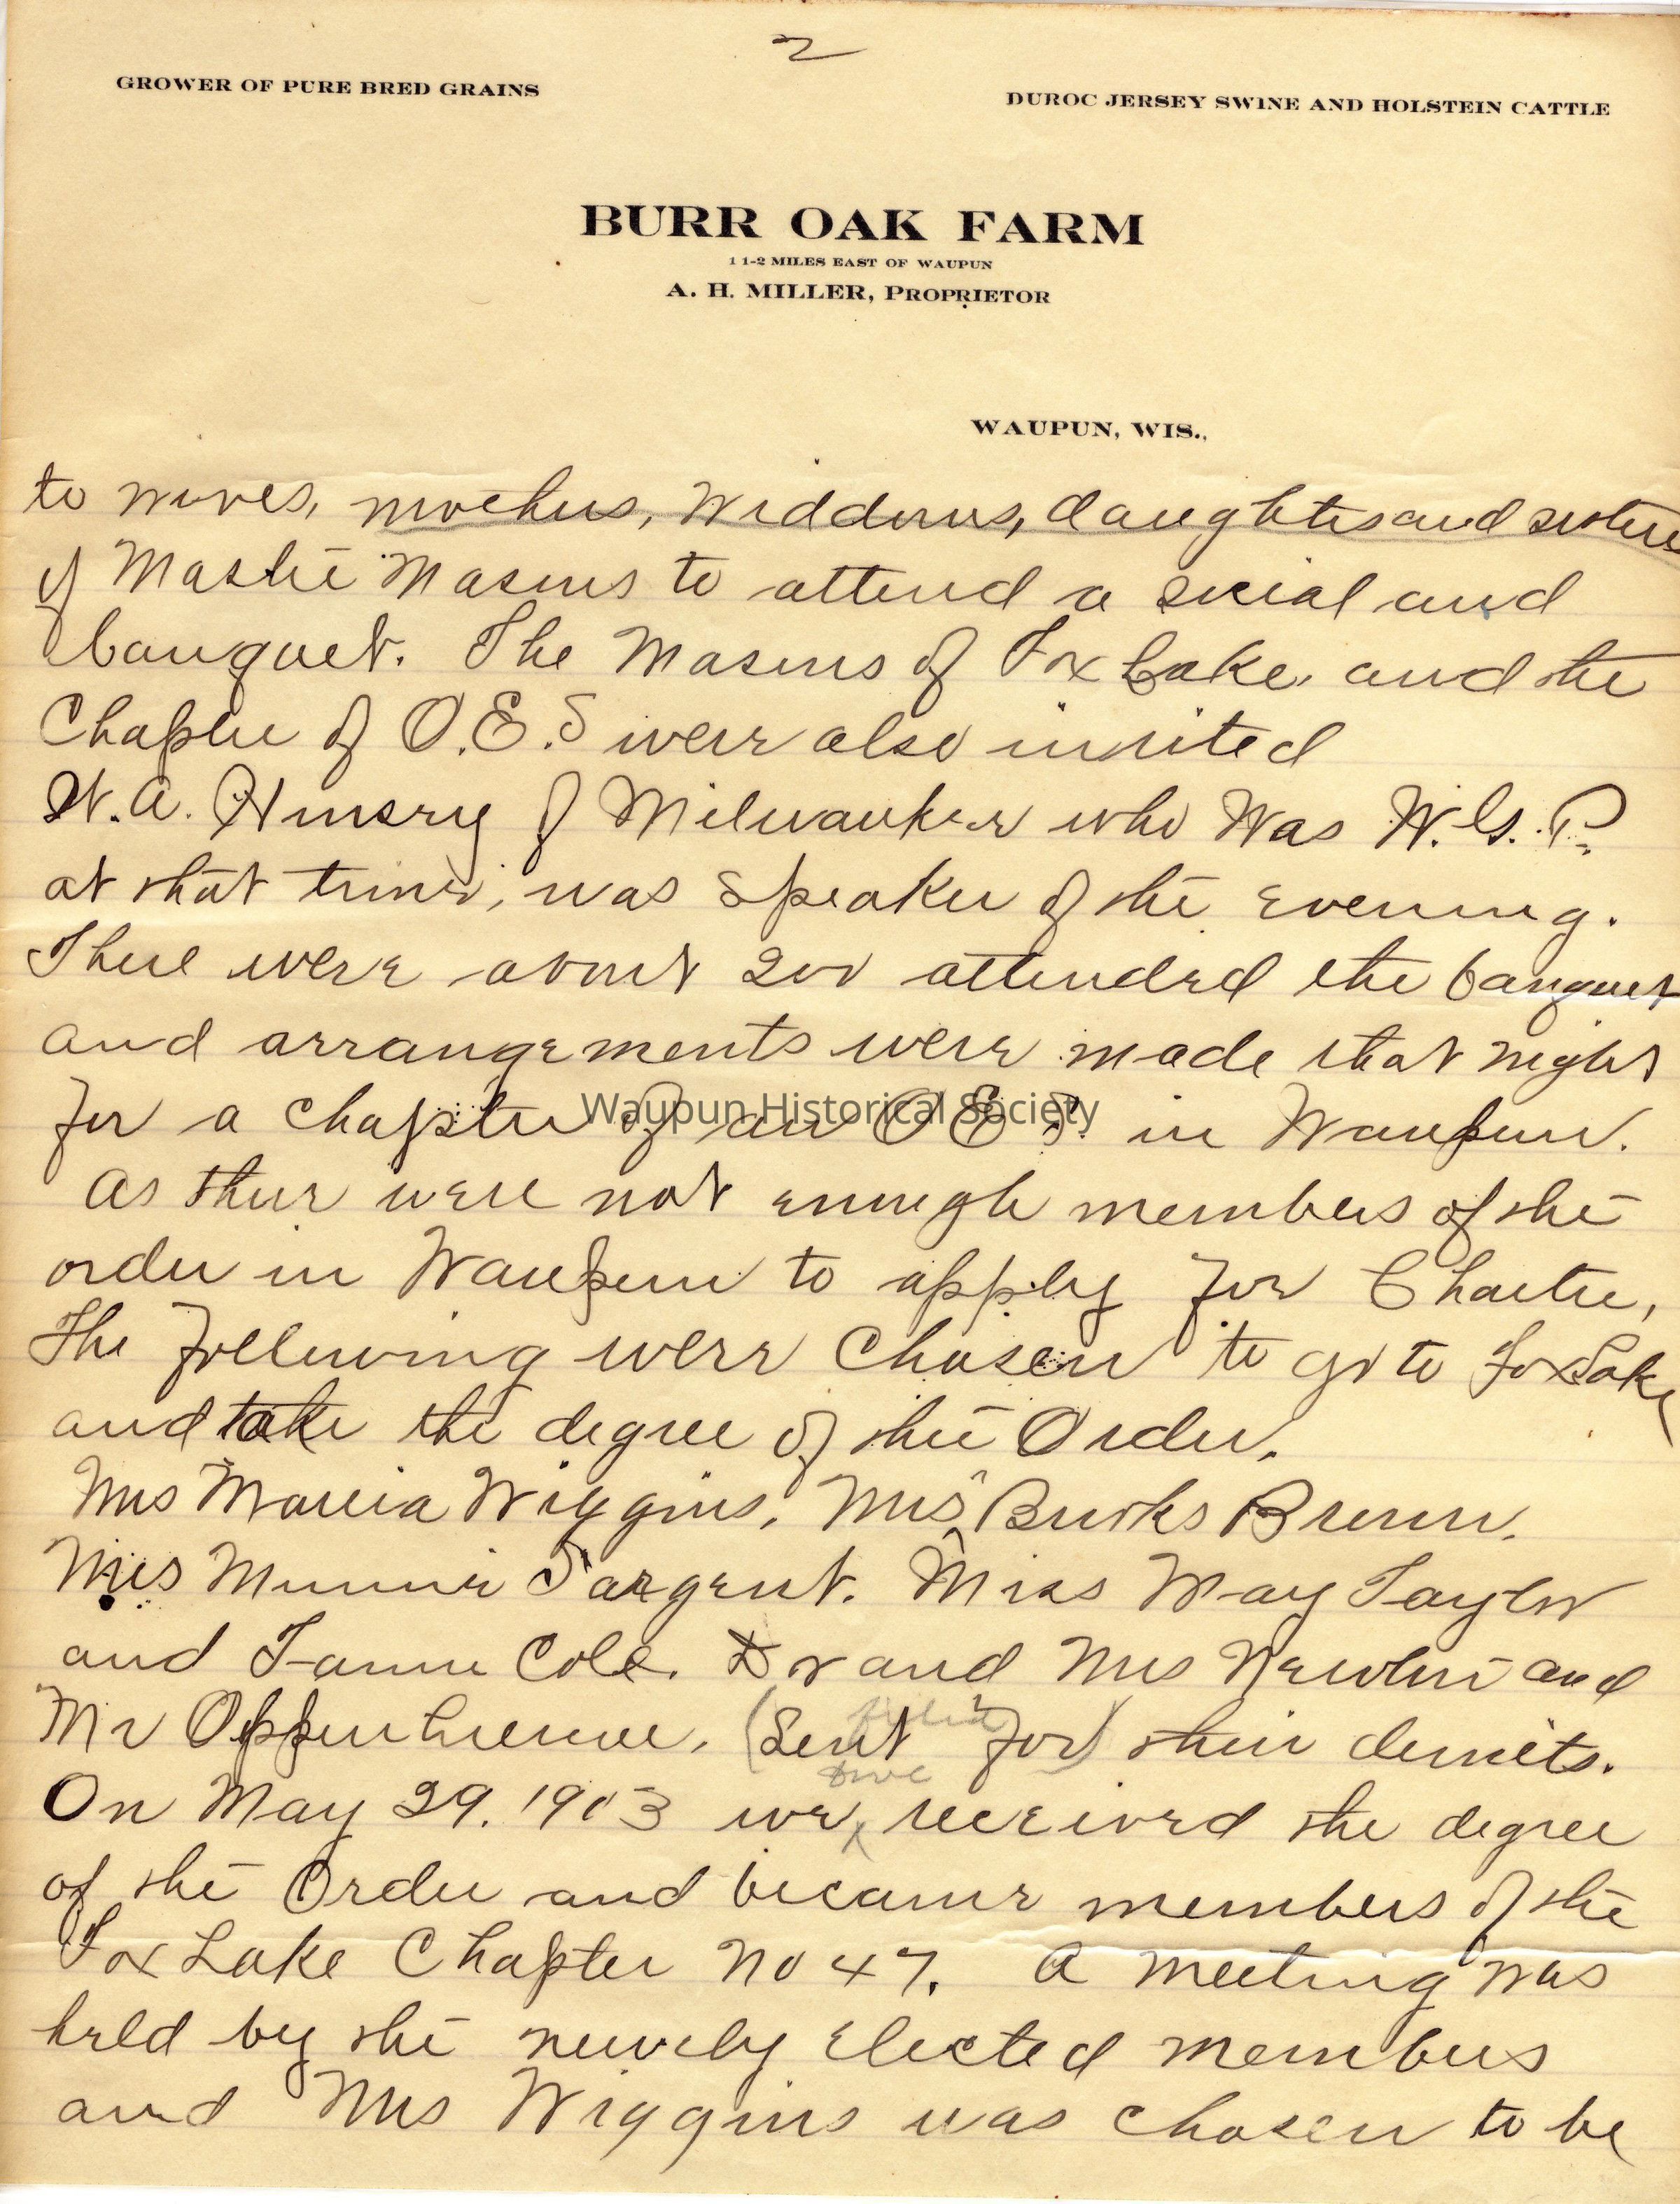 2
GROWER OF PURE BRED GRAINS
DUROC JERSEY SWINE AND HOLSTEIN CATTLE
BURR OAK FARM
1 1-2 MILES EAST OF WAUPUN
A. H. MILLER, PROPRIETOR
WAUPUN, WIS.,
to wives, mothers, Widdows, daughters and sisters
of Master Masons to attend a social and
banquet. The Masons of Fox Lake, and the
Chapter of O.E.S were also invited
W.A. of Milwaukee who Was W.G.P.
at that time, was Speaker of the evening.
There were about 200 attended the banquet
and arrangements were made that night
for a Chapter of an O E S. in Waupun.
Waupun Historical Society
As there were not enough members of the
order in Waupun to apply for Charter,
The following were Chosen to go to Fox Lake
and take the degree of the Order.
Mrs Marcia Wiggins, Mrs Burks Brown.
Mrs Minnie Sargent. Miss May Taylor
and Fannie Cole. Dr and Mrs Newton and
Mr Oppenheimer, (Sent for) their demits.
On May 29. 1903 we received the degree
of the Order and became members of the
Fox Lake Chapter No 47. A meeting was
held by the newely elected members
and Mrs Wiggins was chosen to be